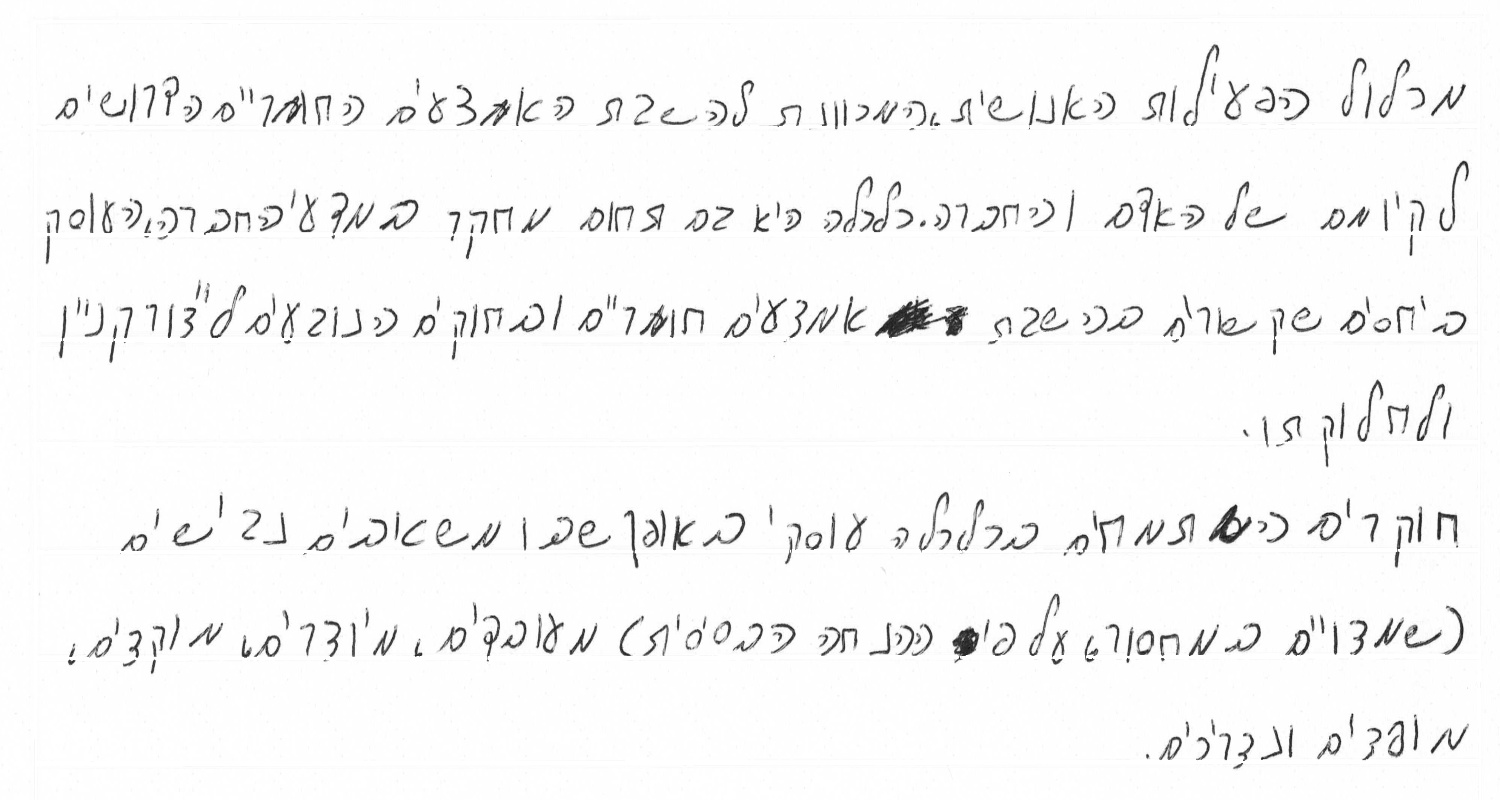 מכלול הפעילות האנושית, המכוונת להשגת האמצעים החומריים הדרושים
לקיומם של האדם והחברה. כלכלה היא גם תחום מחקר במדעי החברה, העוסק
ביחסים שקשורים בהשגת אמצעים חומריים ובחוקים הנוגעים לייצור קניין
ולחלוקתו.
חוקרים המתמחים בכלכלה עוסקי באופן שבו משאבים נגישים
(שמצויים במחסור, על פי ההנחה הבסיסית) מעובדים, מיוצרים, מוקצים,
מופצים ונצרכים.